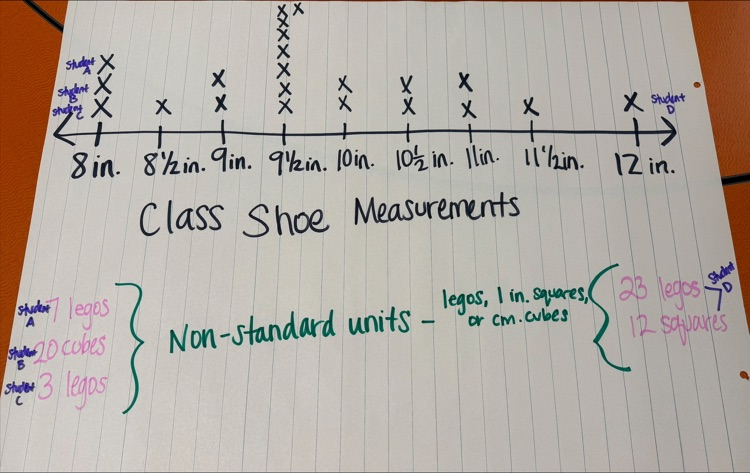 Student A
Student B
Student C
Student D
8 in. 8 1/2 in. 9 in. 9 1/2 in. 10 in. 10 1/2 in. 11 in. 11 1/2 in. 12 in.
Class Shoe Measurements
Student A 7 legos
Student B 20 cubes
Student C 3 legos
Non-standard units - legos, 1 in. squares,
or cm. cubes
23 legos Student D
12 squares